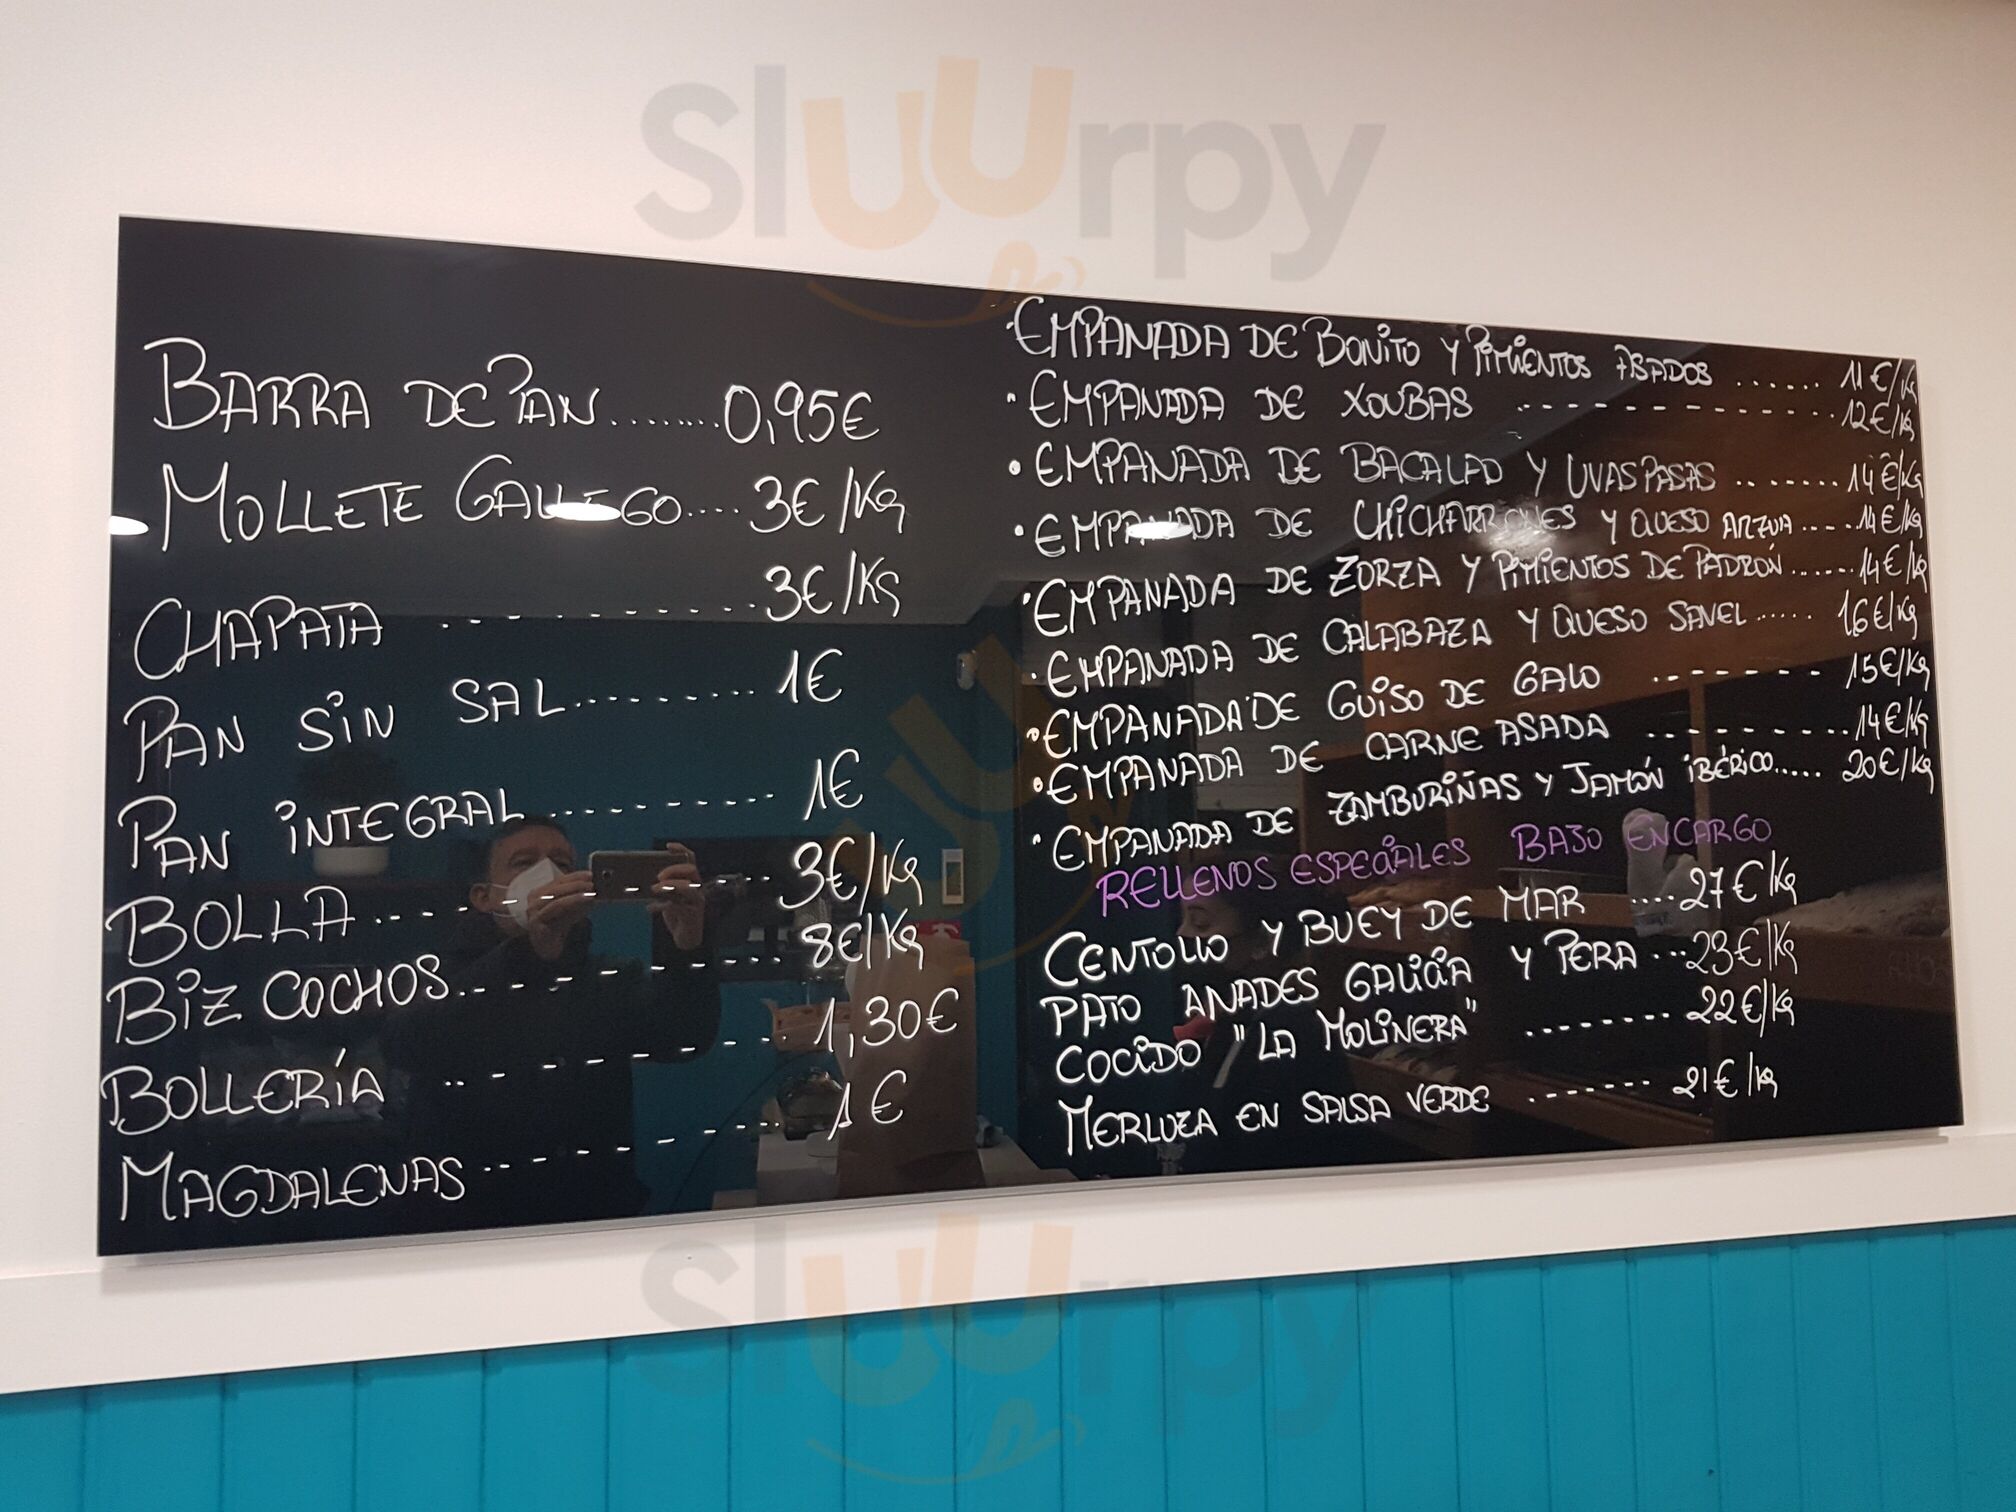 Sluurpy
BARRA DE PAN........0,95€
MOLLETE GALLEGO....3€/Kg
CHAPATA - - - - - - - - - 3€/Kg
PAN SIN SAL.......... 1€
PAN INTEGRAL........... 1€
BOLLA...- - - - - - - - 3€/Kg
BIZCOCHOS..- - - - - - - 8€/Kg
BOLLERÍA ..- - - - - - - 1,30€
MAGDALENAS ..- - - - - - - 1€
·EMPANADA DE BONITO Y PIMIENTOS ASADOS ...... 11€/Kg
·EMPANADA DE XOUBAS - - - - - - - - - - - - 12€/Kg
·EMPANADA DE BACALAO Y UVAS PASAS ....... 14€/Kg
·EMPANADA DE CHICHARRONES Y QUESO ARZUA ..... 14€/Kg
·EMPANADA DE ZORZA Y PIMIENTOS DE PADRÓN...... 14€/Kg
·EMPANADA DE CALABAZA Y QUESO SAVEL ...... 16€/Kg
·EMPANADA DE GUISO DE GALO - - - - - - - 15€/Kg
·EMPANADA DE CARNE ASADA - - - - - - - - - 14€/Kg
·EMPANADA DE ZAMBURIÑAS Y JAMÓN IBÉRICO..... 20€/Kg
RELLENOS ESPECIALES BAJO ENCARGO
CENTOLLO Y BUEY DE MAR ....27€/Kg
PATO ANADES GALICIA Y PERA ...23€/Kg
COCIDO "LA MOLINERA" ........ 22€/Kg
MERLUZA EN SALSA VERDE ....... 21€/Kg
Sluurpy